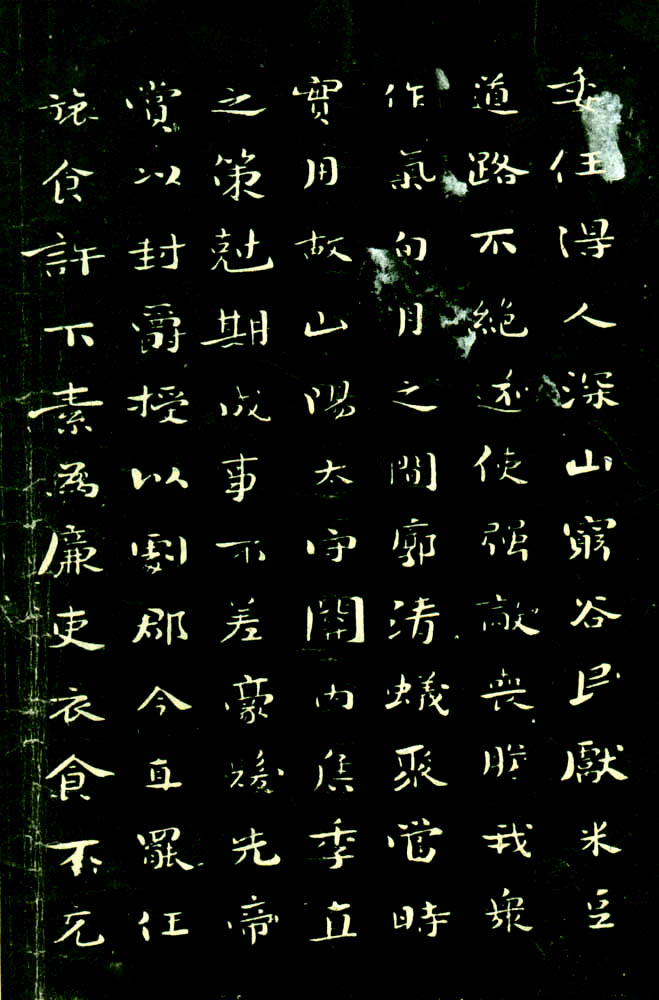 委任得人深山窮谷民獻米豆
道路不絕遂使强敵喪膽我衆
作氣旬月之間廓清蟻聚當時
實用故山陽太守關內侯季直
之策尅期成事不差豪髮先帝
賞以封爵授以劇郡今直罷任
旅食許下素爲廉吏衣食不充